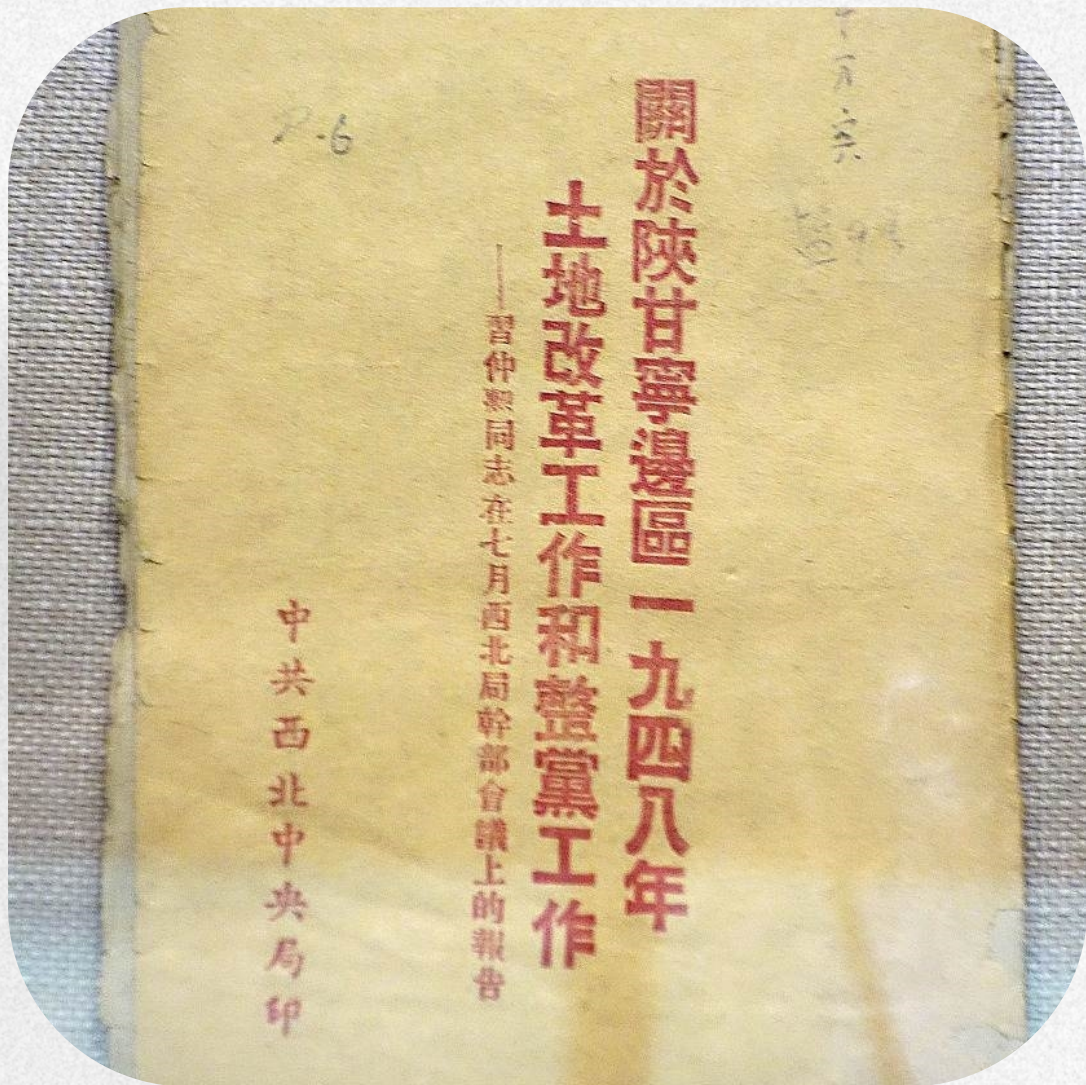 關於陝甘寧邊區一九四八年
土地改革工作和整黨工作
——習仲勳同志在七月西北局幹部會議上的報告
中共西北中央局印